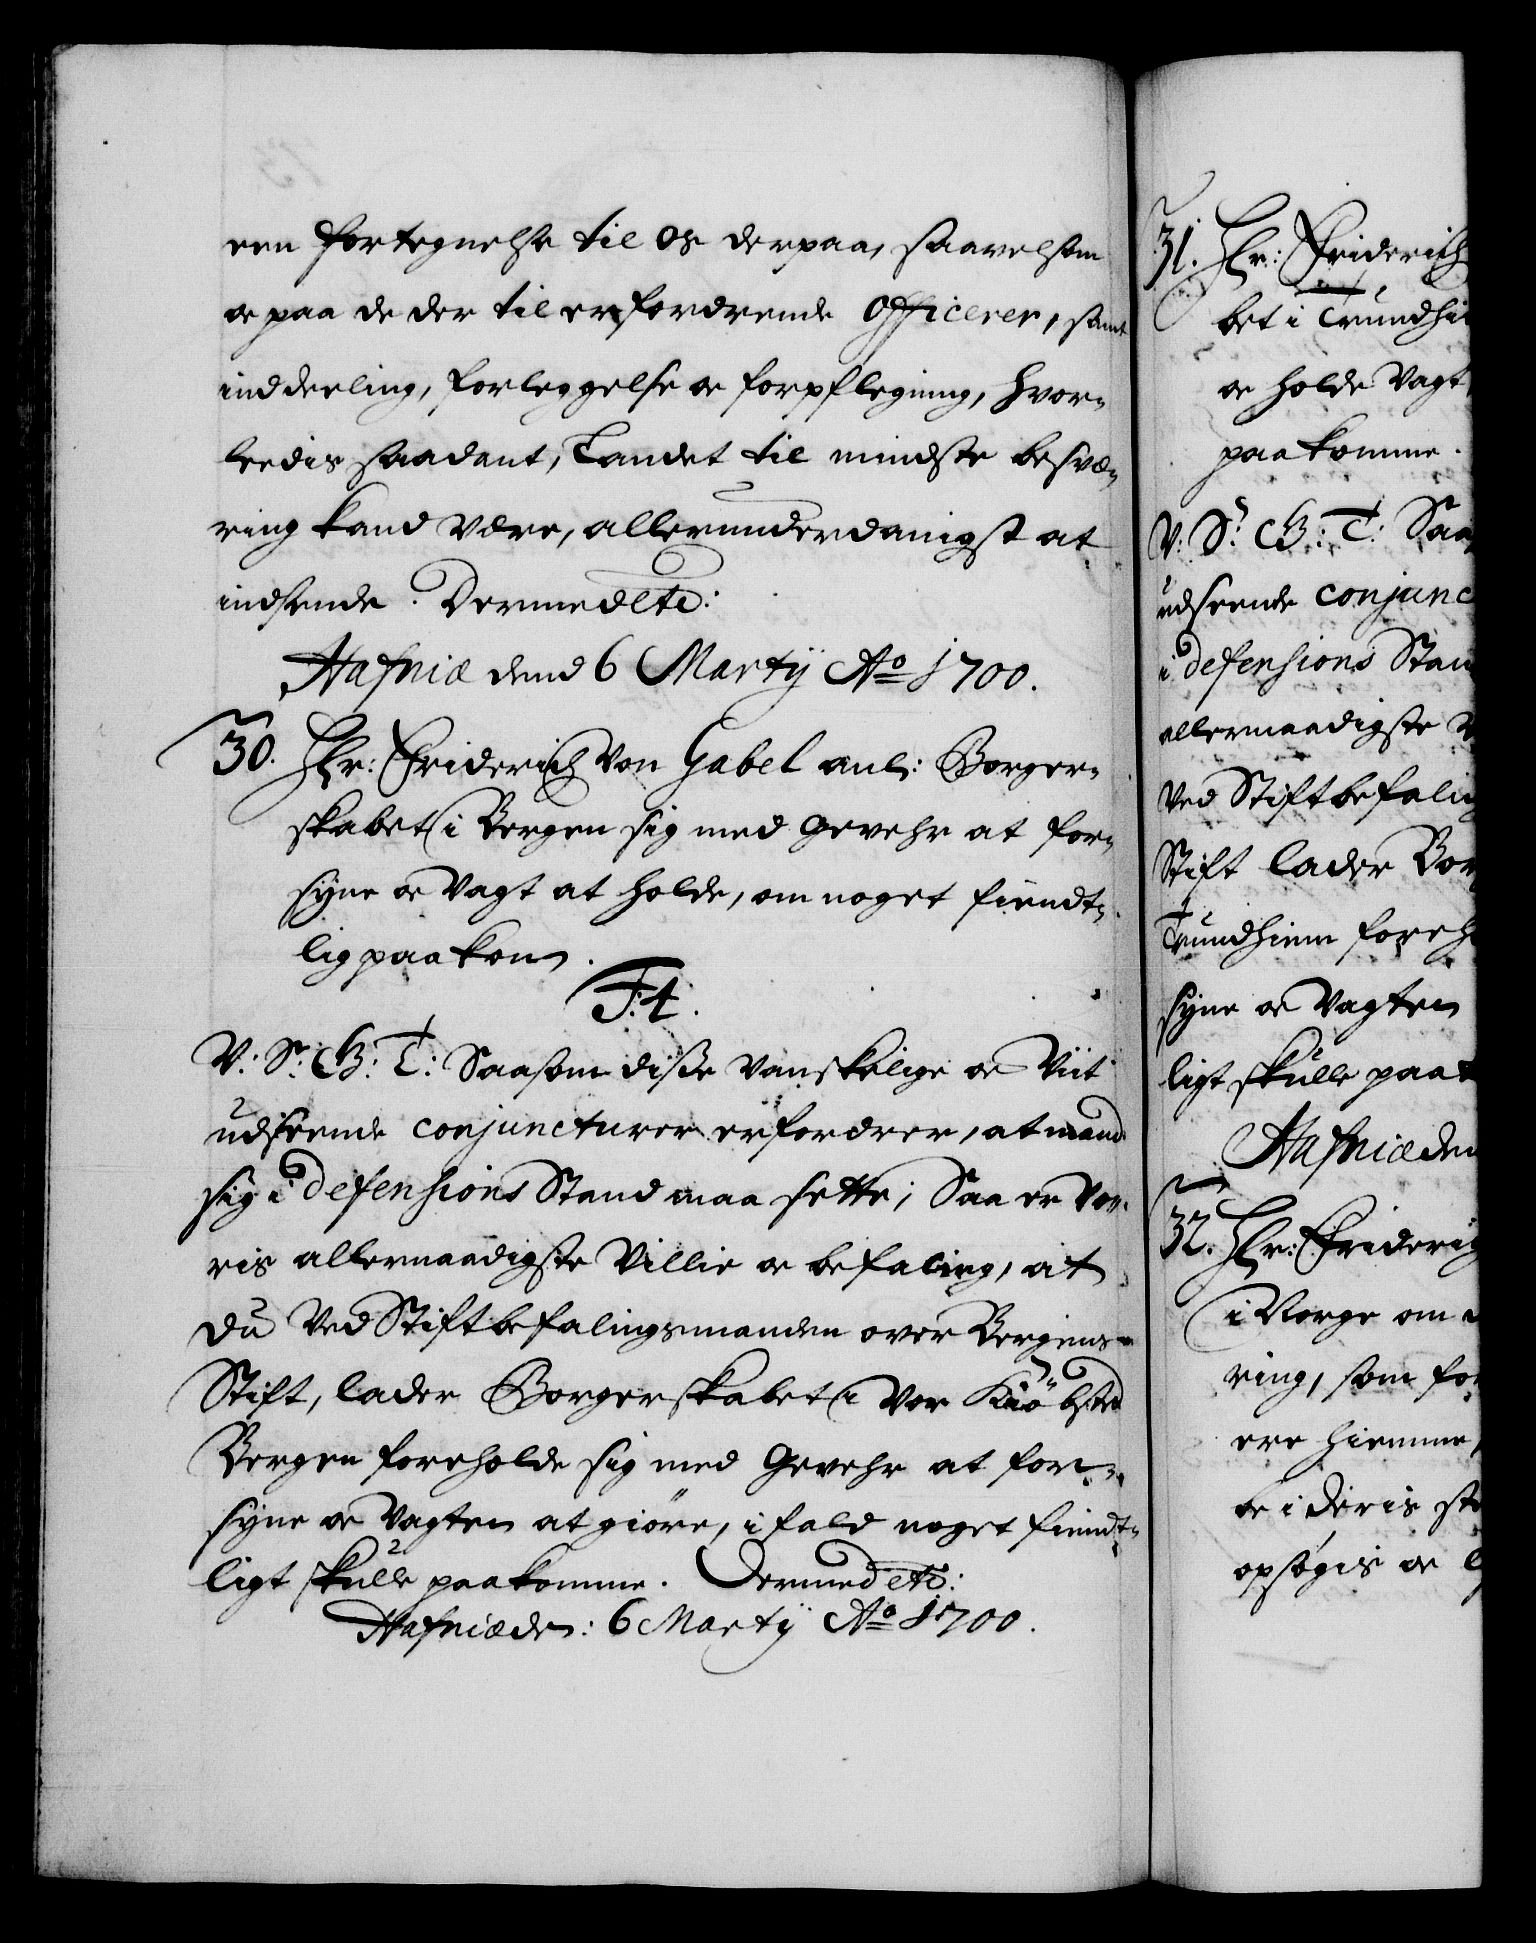 een fortegnelse til os derpaa, saavelsom
oc paa de der til erfordrende Officerer, samt
inddeeling, forleggelse oc forpflegning, hvor-
leedis saadant, Landet til mindste besvæ-
ring kand være, allerunderdanigst at
indsende. Dermed etc:
Hafniæ dend 6 Martij Ao 1700.
30. Hr: Friderich von Gabel anl: Borger-
skabet i Bergen sig med Gevehr at for-
syne oc Vagt at holde, om noget fiendt-
lig paakom.
F:4.
V: S: G: T: Saasom disse vanskelige oc Viit
udseende conjuncturer erfordrer, at mand
sig i defensions Stand maa sette; Saa er Vo-
ris allernaadigste Villie oc befaling, at
du Ved Stiftbefalingsmanden over Bergens
Stift, lader Borgerskabet i vor Kiöbsted
Bergen foreholde sig med Gevehr at for-
syne oc Vagten at giöre, i fald noget fiendt-
ligt skulle paakomme. Dermed etc:
Hafniæ den: 6 Martij Ao 1700.
31. Hr: Friderich
bet i Trundhi
oc holde Vagt
paakomme.
V: S: G: T: Saa
udseende conjunc
i defensions Stan
allernaadigste V
Ved Stiftbefaling
Stift lader Bor
Trundhiem foreh
syne oc Vagten
ligt skulle paak
Hafniæ den
32. Hr: Friderich
i Norge om
ring, som for
ere hiemme,
oc i deris st
opsøgis oc